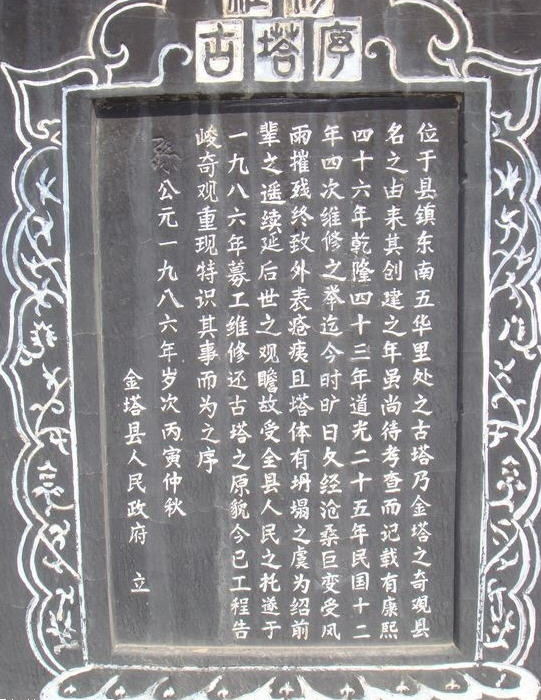 古塔序
位于县镇东南五华里处之古塔乃金塔之奇观县
名之由来其创建之年虽尚待考查而记载有康熙
四十六年乾隆四十三年道光二十五年民国十二
年四次维修之举迄今时旷日久经沧桑巨变受风
雨摧残终致外表疮痍且塔体有坍塌之虞为绍前
辈之遥续延后世之观瞻故受全县人民之托遂于
一九八六年募工维修还古塔之原貌今已工程告
峻奇观重现特识其事而为之序
公元一九八六年岁次丙寅仲秋
金塔县人民政府 立